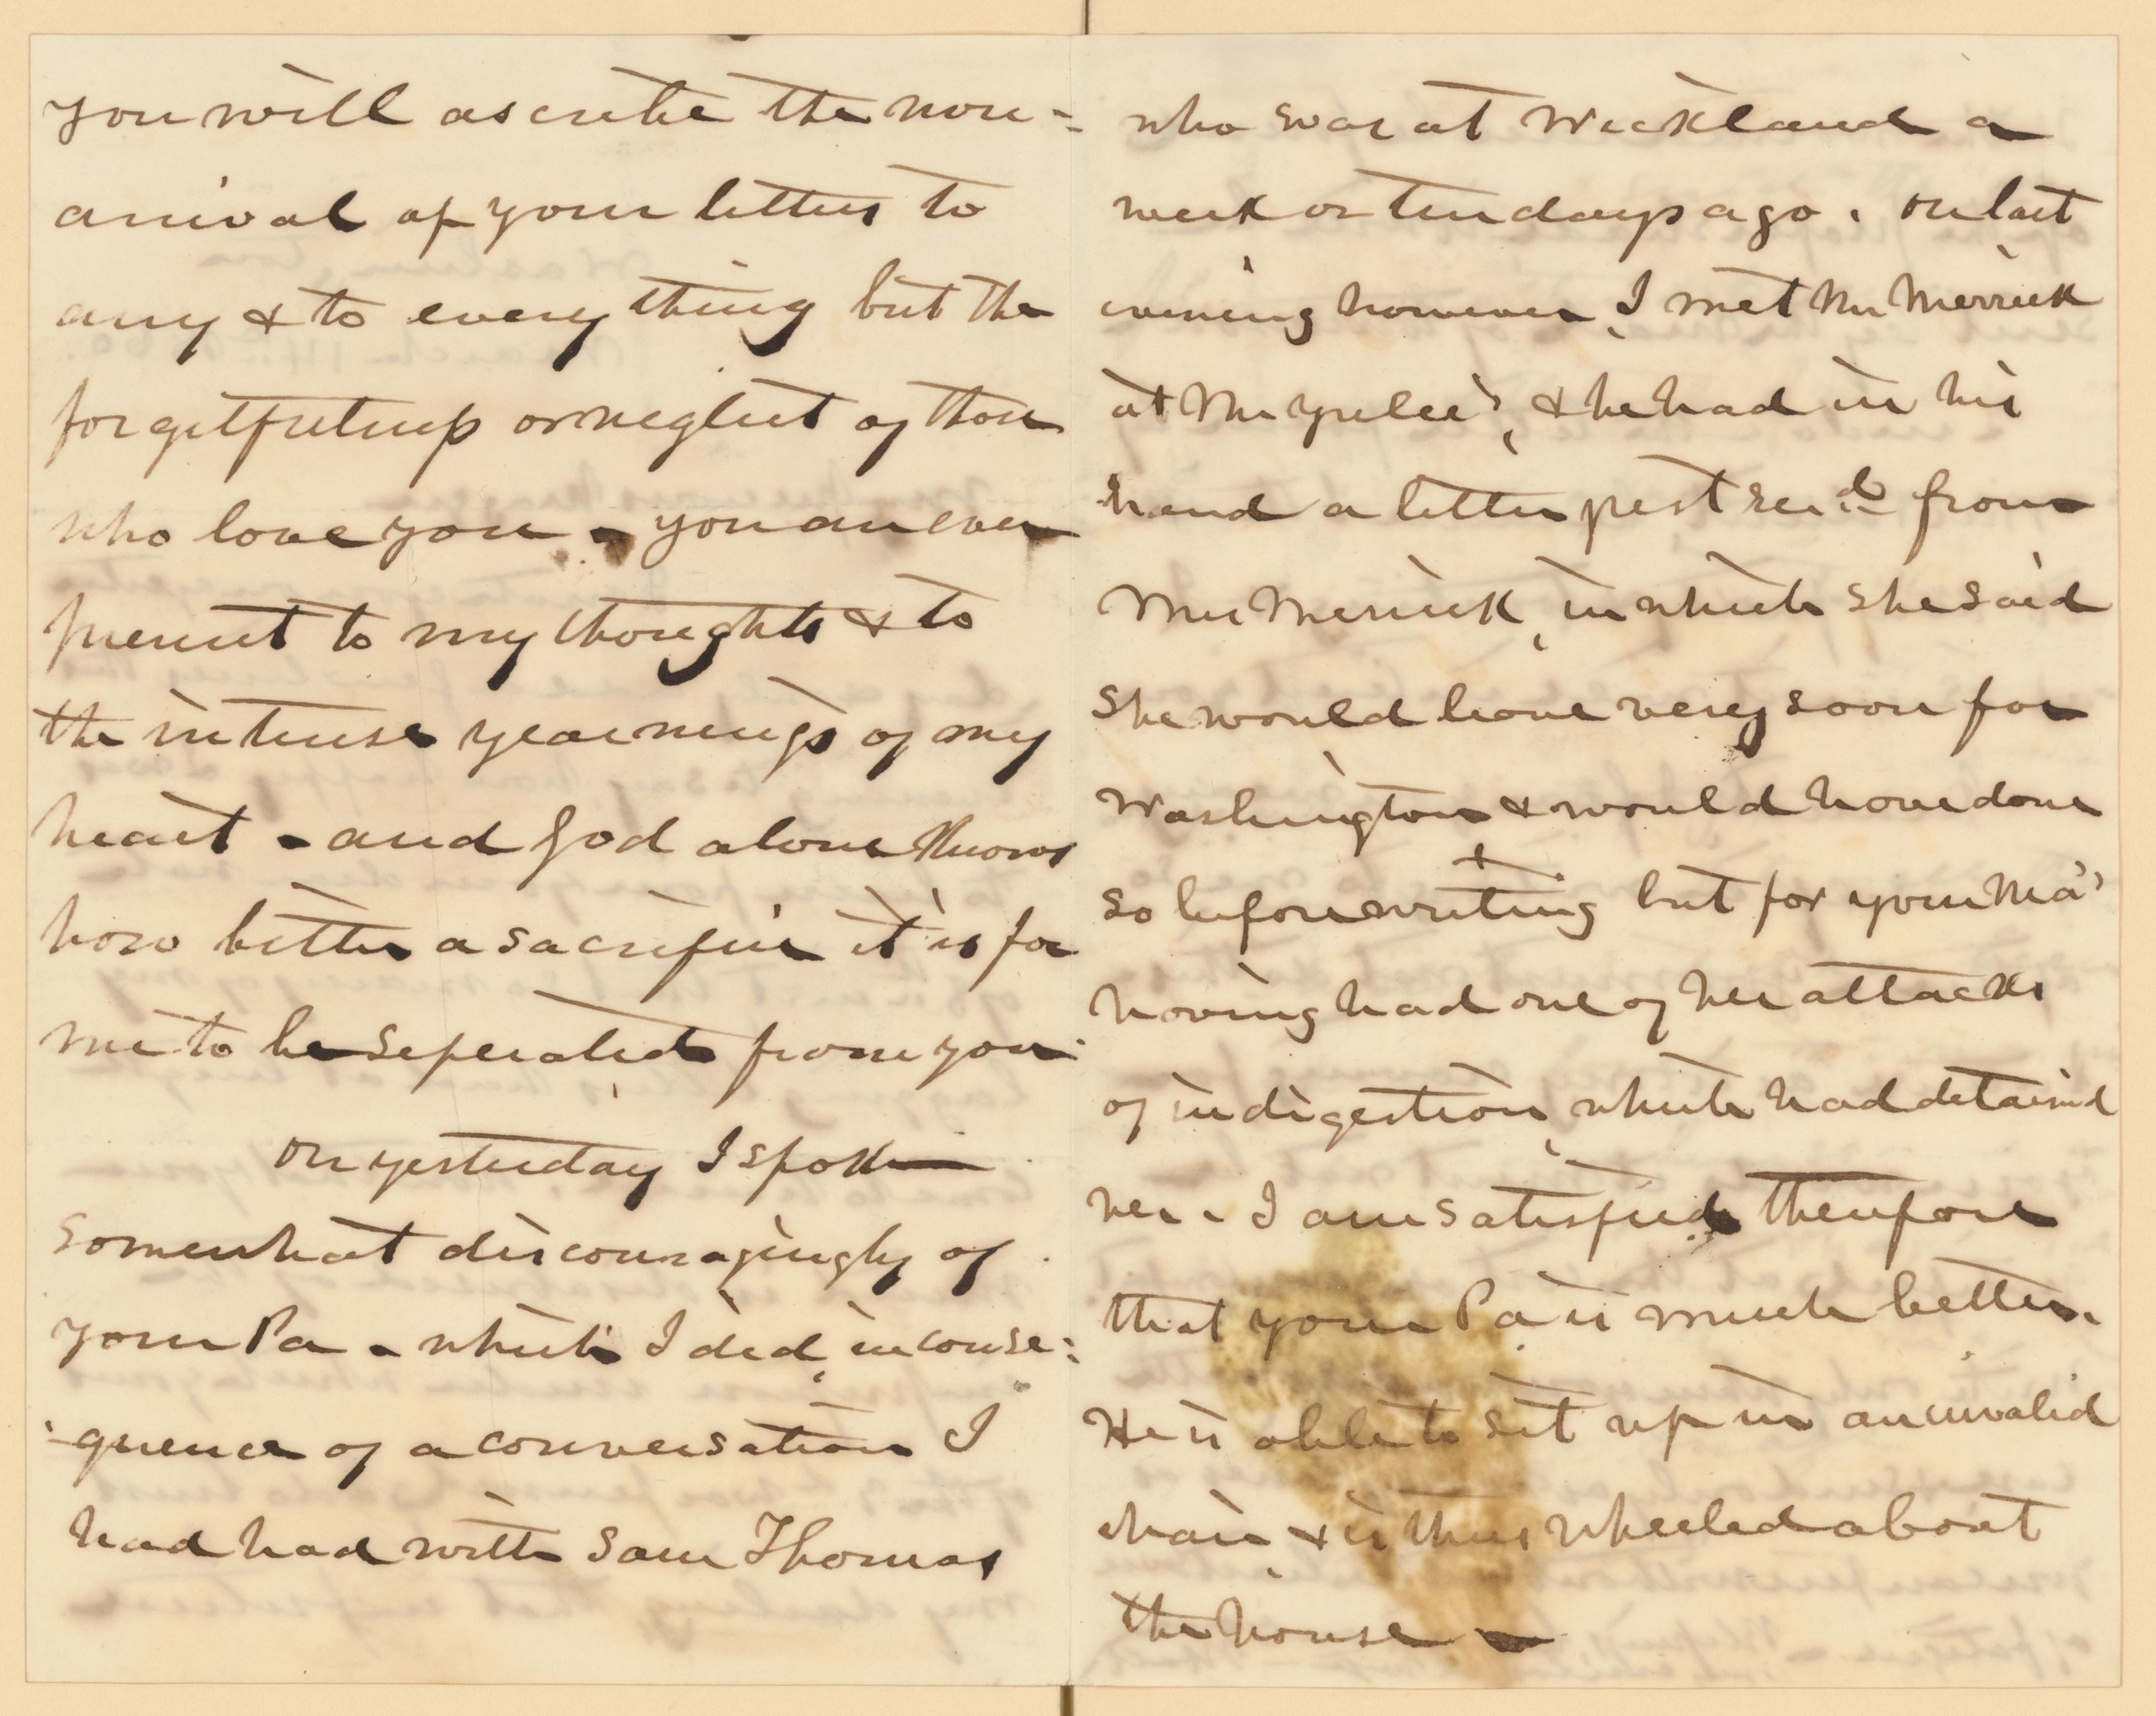 you will ascribe the non-
arrival of your letters to
any & to every thing but the
forgetfulness or neglect of those
who love you - you are ever
present to my thoughts & to
the intense yearnings of my
heart - and God alone knows
how bitter a sacrifice it is for
me to be seperated from you.
On yesterday I spoke
somewhat discouragingly of
your Pa - which I did, in conse-
-quence of a conversation I
had had with Sam Thomas
who was at Wickland a
week or ten days ago. On last
evening however, I met Mr Merrick
at Mr Yulee's, & he had in his
hand a letter just recd from
Mrs Merrick, in which she said
she would leave very soon for
Washington & would have done
so before writing but for your Ma's
having had one of her attacks
of indigestion, which had detained
her - I am satisfied therefore
that your Pa is much better.
He is able to sit up in an invalid
chair, & is thus wheeled about
the house -